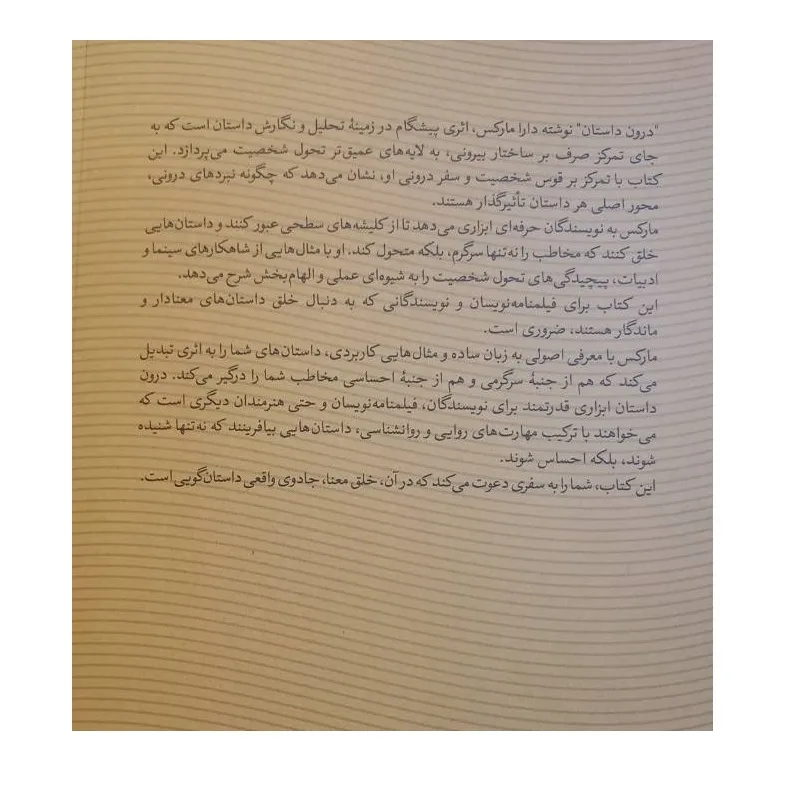 "درون داستان" نوشته دارا مارکس، اثری پیشگام در زمینهٔ تحلیل و نگارش داستان است که به
جای تمرکز صرف بر ساختار بیرونی، به لایه‌های عمیق‌تر تحول شخصیت می‌پردازد. این
کتاب با تمرکز بر قوس شخصیت و سفر درونی او، نشان می‌دهد که چگونه نبردهای درونی،
محور اصلی هر داستان تأثیرگذار هستند.
مارکس به نویسندگان حرفه‌ای ابزاری می‌دهد تا از کلیشه‌های سطحی عبور کنند و داستان‌هایی
خلق کنند که مخاطب را نه‌تنها سرگرم، بلکه متحول کند. او با مثال‌هایی از شاهکارهای سینما و
ادبیات، پیچیدگی‌های تحول شخصیت را به شیوه‌ای عملی و الهام‌بخش شرح می‌دهد.
این کتاب برای فیلمنامه‌نویسان و نویسندگانی که به دنبال خلق داستان‌های معنادار و
ماندگار هستند، ضروری است.
مارکس با معرفی اصولی به زبان ساده و مثال‌هایی کاربردی، داستان‌های شما را به اثری تبدیل
می‌کند که هم از جنبهٔ سرگرمی و هم از جنبهٔ احساسی مخاطب شما را درگیر می‌کند. درون
داستان ابزاری قدرتمند برای نویسندگان، فیلمنامه‌نویسان و حتی هنرمندان دیگری است که
می‌خواهند با ترکیب مهارت‌های روایی و روانشناسی، داستان‌هایی بیافرینند که نه‌تنها شنیده
شوند، بلکه احساس شوند.
این کتاب، شما را به سفری دعوت می‌کند که در آن، خلق معنا، جادوی واقعی داستان‌گویی است.